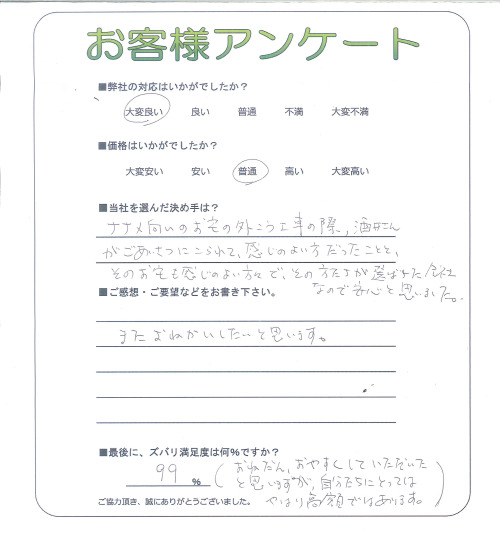 お客様アンケート
■弊社の対応はいかがでしたか?
大変良い 良い 普通 不満 大変不満
■価格はいかがでしたか?
大変安い 安い 普通 高い 大変高い
■当社を選んだ決め手は?
ナナメ向いのお宅の外こう工事の際、酒井さん
がごあいさつにこられて、感じのよい方だったことと、
そのお宅も感じのよい方々で、その方たちが選ばれた会社
なので安心と思いました。
■ご感想・ご要望などをお書き下さい。
またおねがいしたいと思います。
■最後に、ズバリ満足度は何%ですか?
99 %
(おねだん、おやすくしていただいた
と思いますが、自分たちにとっては
やはり高額ではあります。)
ご協力頂き、誠にありがとうございました。